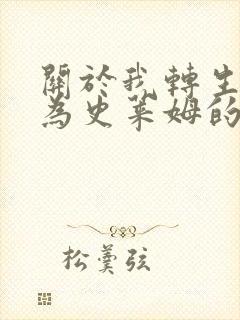 關於我轉生
為史萊姆的
松羹弦